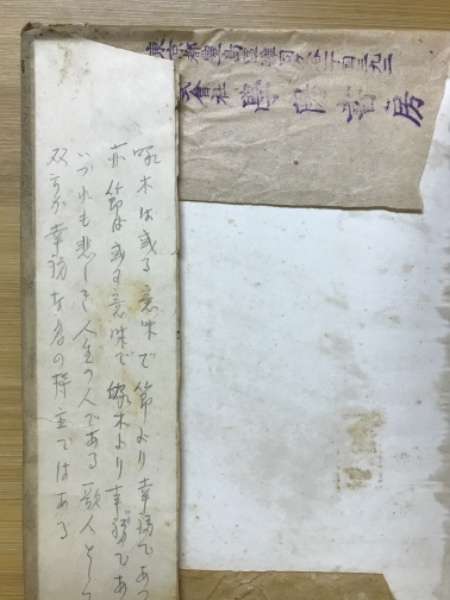 東京都豊島區雜司ヶ谷一丁目三九二
式會社 書房
啄木は或る意味で節より幸福であつ
亦節は或る意味で啄木より幸福であ
いづれも悲しき人生の人である 歌人とし
双方が幸福な名の持主ではある